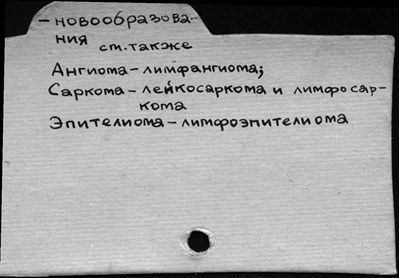 – новообразова-
ния
см. также
Ангиома – лимфангиома;
Саркома – лейкосаркома и лимфосар-
кома
Эпителиома – лимфоэпителиома